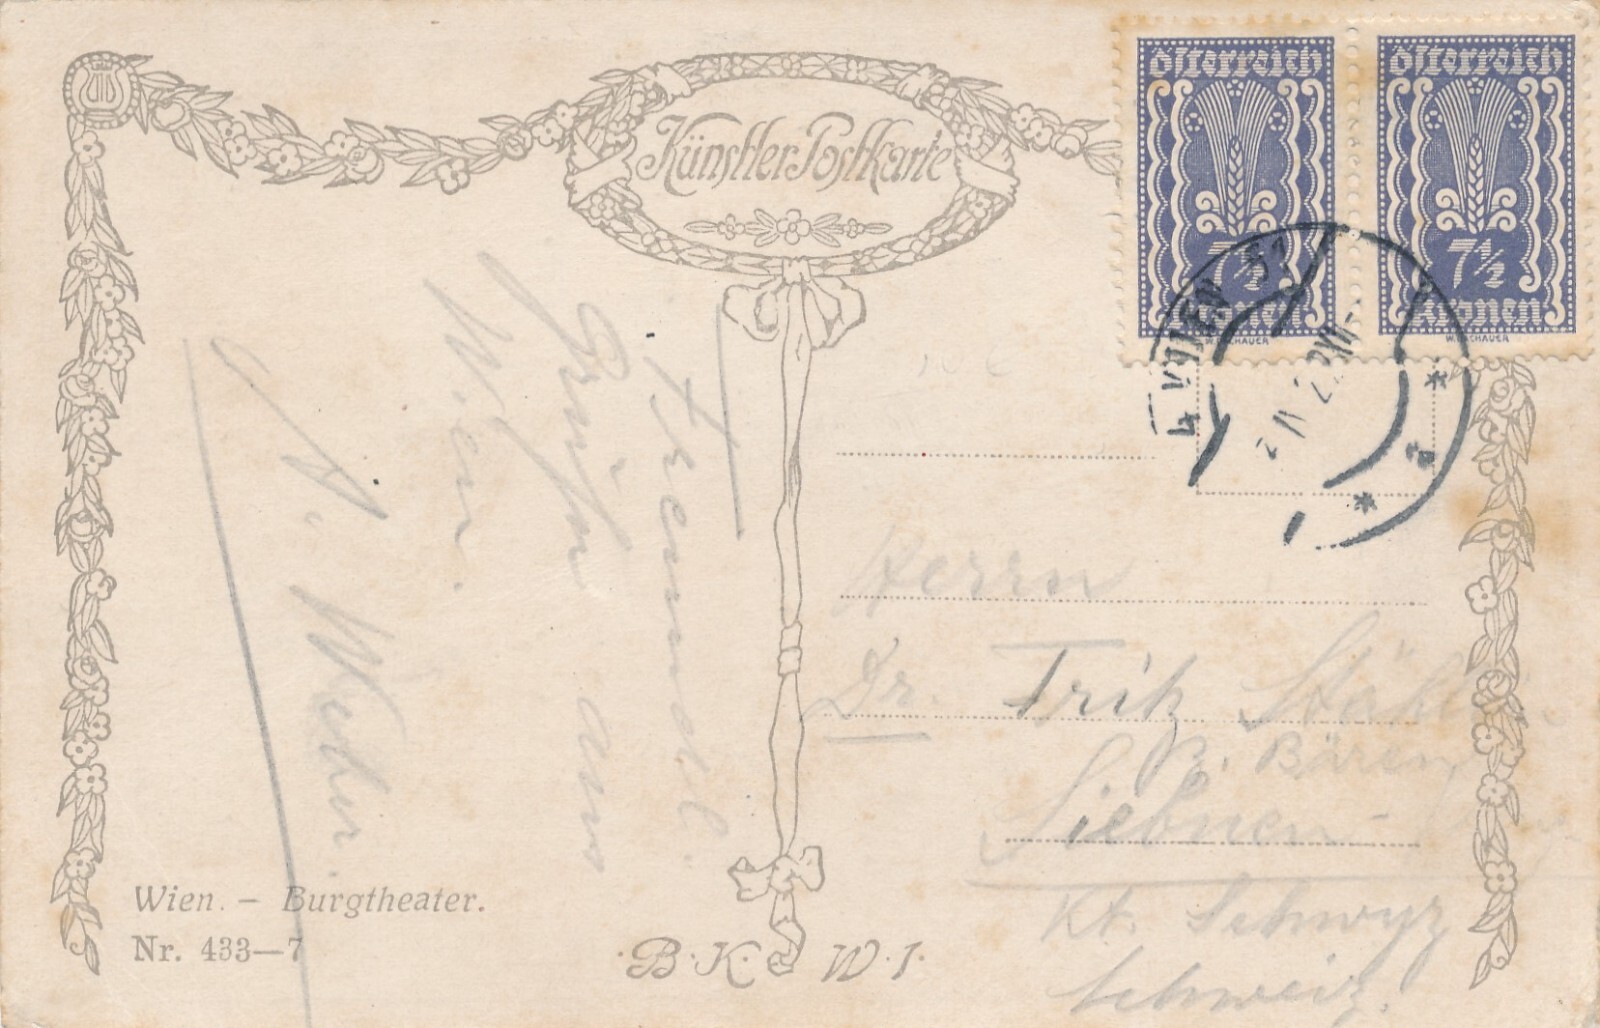 Künstler Postkarte
österreich
7½
Kronen
W. DACHAUER
österreich
7½
Kronen
W. DACHAUER
WIEN 51
Freundl.
Grüße aus
Wien.
A. Weber
Herrn
Dr. Fritz
z. Bären
Siebnen-
Kt. Schwyz
Schweiz.
Wien. – Burgtheater.
Nr. 433–7
·B·K· W·I·